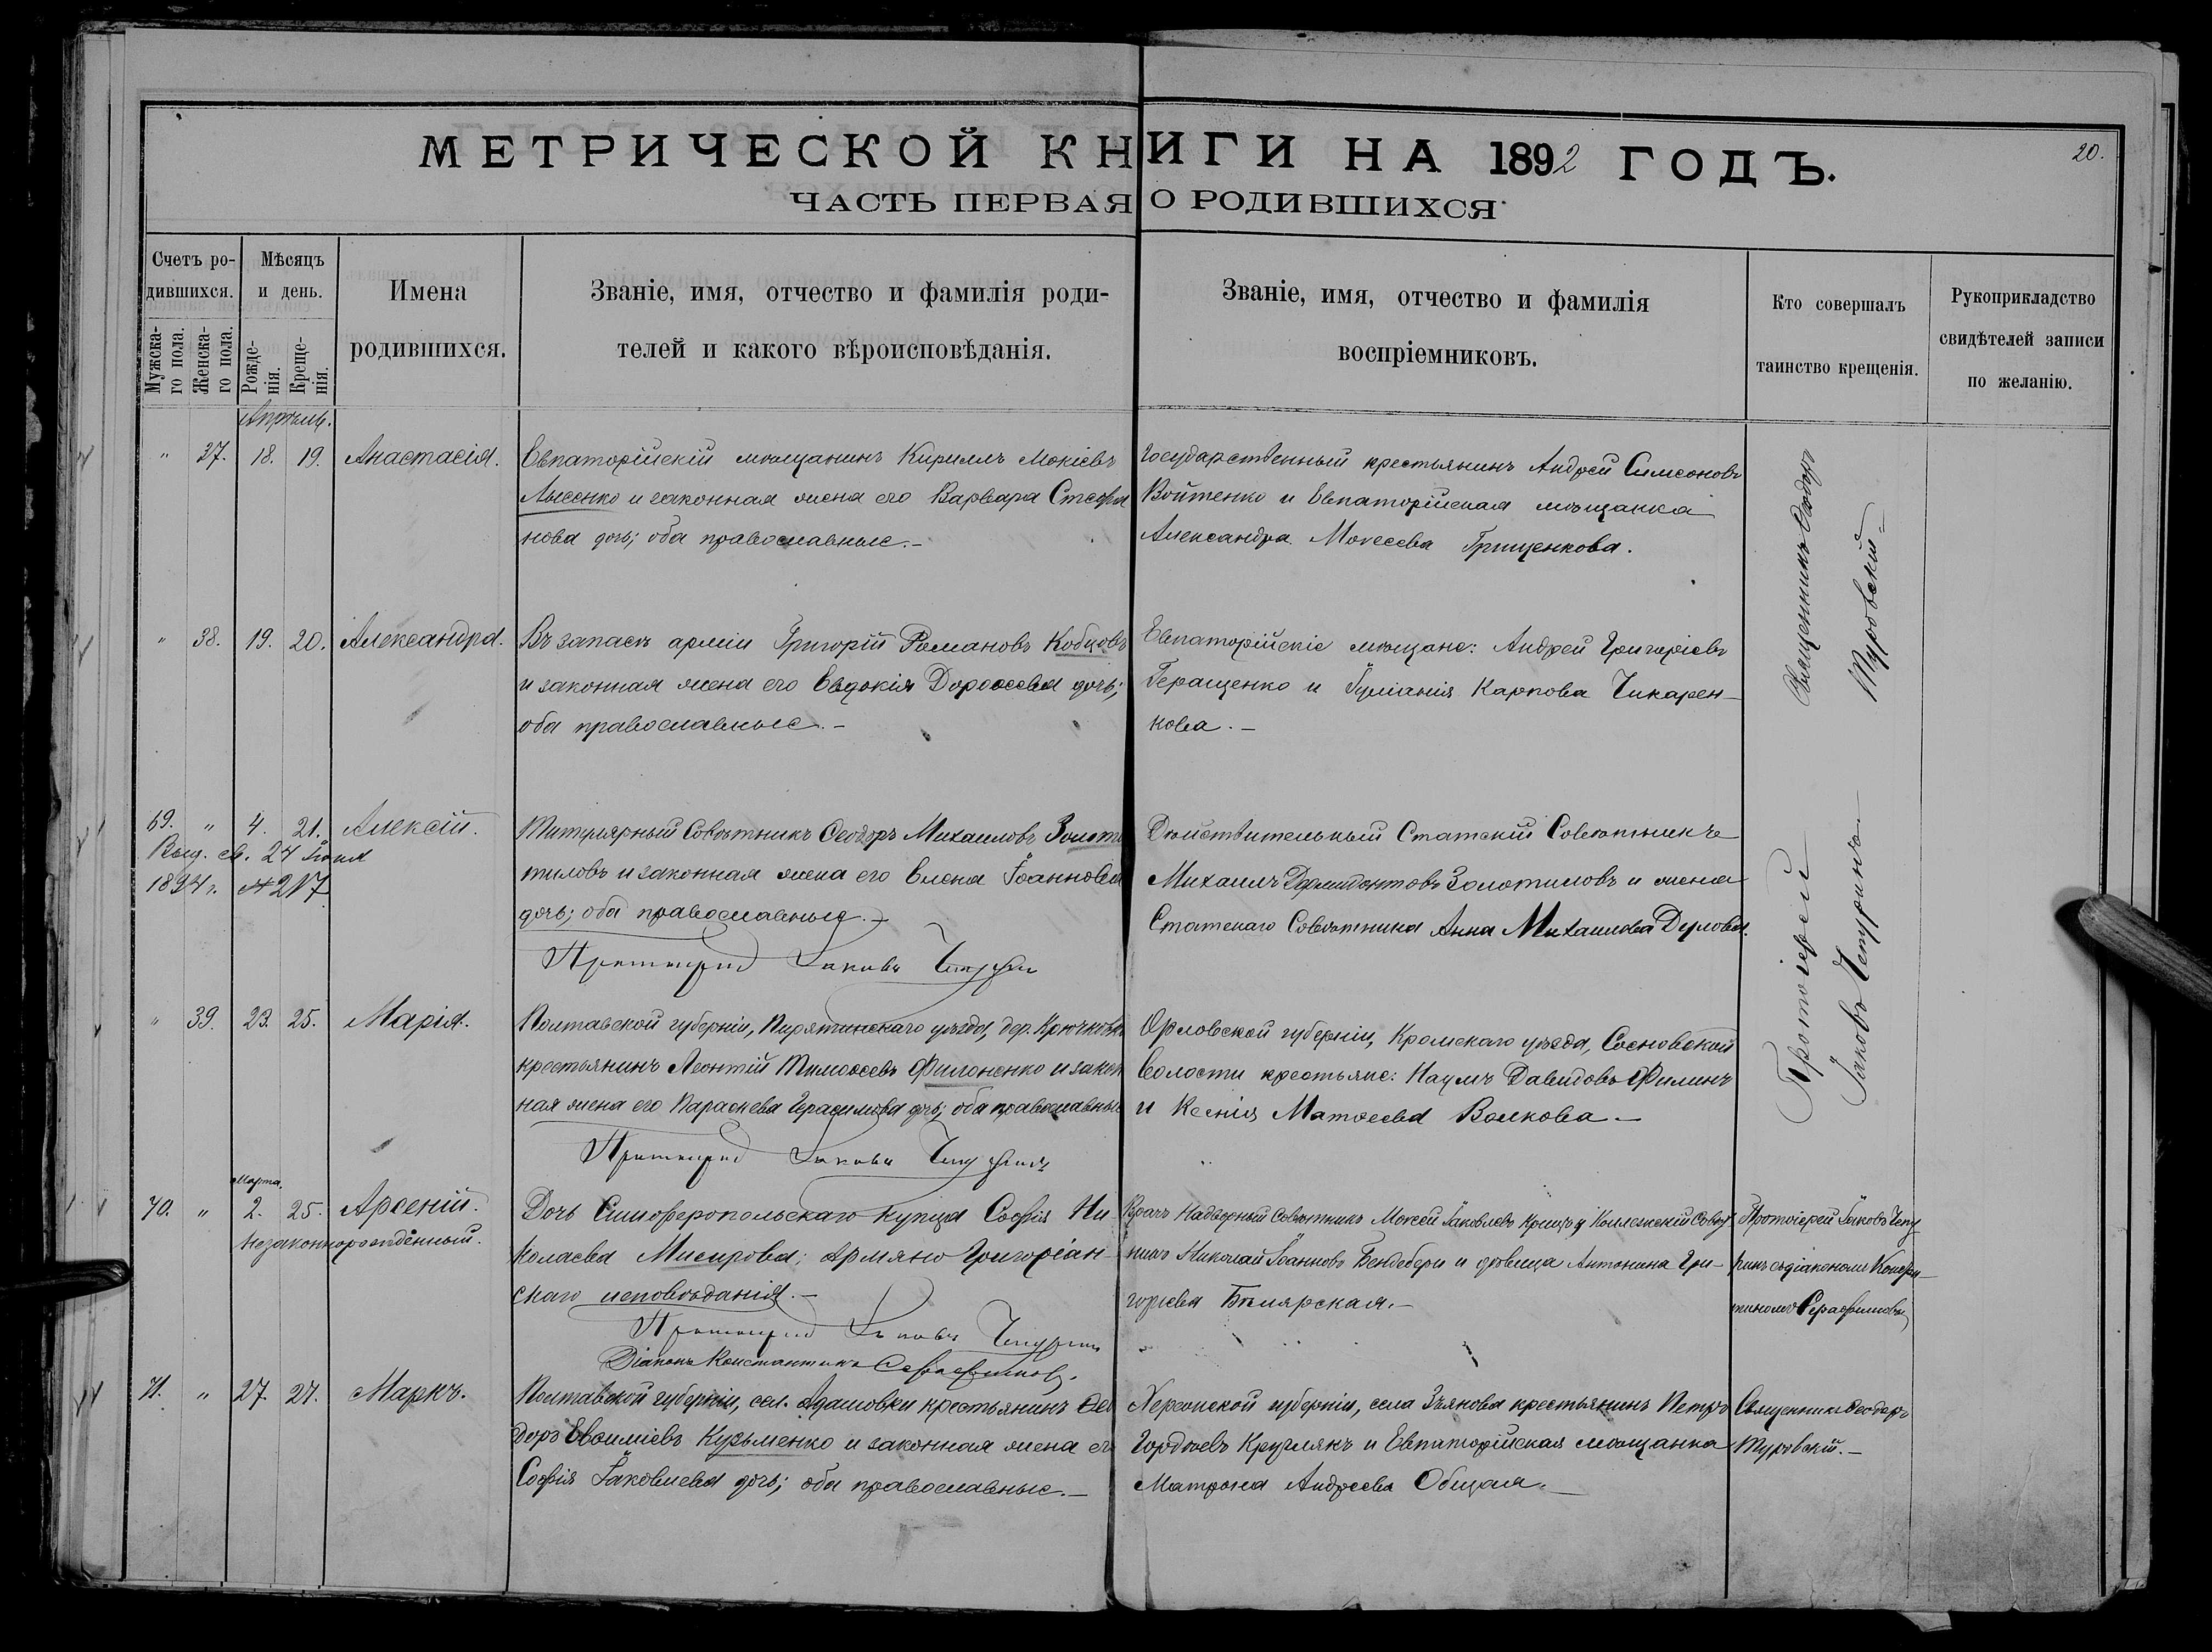 МЕТРИЧЕСКОЙ КНИГИ НА 1892 ГОДЪ.
20.
ЧАСТЬ ПЕРВАЯ О РОДИВШИХСЯ
Счетъ ро-
дившихся.
Мужска-
го пола.
Женска-
го пола.
Мѣсяцъ
и день.
Рожде-
нія.
Креще-
нія.
Имена
родившихся.
Званіе, имя, отчество и фамилія роди-
телей и какого вѣроисповѣданія.
Званіе, имя, отчество и фамилія
воспріемниковъ.
Кто совершалъ
таинство крещенія.
Рукоприкладство
свидѣтелей записи
по желанію.
Апрѣль.
" 37. 18. 19. Анастасія.
Евпаторійскій мѣщанинъ Кириллъ Мокіевъ
Лысенко и законная жена его Варвара Стефа
нова дочь; оба православные.–
Государственный крестьянинъ Андрей Симеоновъ
Войтенко и Евпаторійская мѣщанка
Александра Гриценкова.
Священникъ Ѳеодоръ
Туровскій
" 38. 19. 20. Александра.
Въ запасѣ арміи Григорій Романовъ Кобцовъ
и законная жена его Евдокія Дороѳеева дочь;
оба православные.–
Евпаторійскіе мѣщане: Андрей Григоріевъ
Геращенко и Карпова Чикарен-
кова.–
69. " 4. 21. Алексій.
Выд. св. 24 Іюня
1894 г. № 217
Титулярный Совѣтникъ Ѳеодоръ Михаиловъ Золоти
тиловъ и законная жена его Елена Іоаннова
дочь; оба православные.–
Протоіерей Іаковъ Чепуринъ
Дѣйствительный Статскій Совѣтникъ
Михаилъ Золотиловъ и жена
Статскаго Совѣтника Анна Михаилова
Протоіерей
Іаковъ Чепуринъ–
" 39. 23. 25. Марія.
Полтавской губерніи, Пирятинскаго уѣзда, дер.
крестьянинъ Леонтій Тимоѳеевъ Филоненко и закон
ная жена его Параскева Герасимова дочь; оба православные
Протоіерей Іаковъ Чепуринъ
Орловской губерніи, Кромскаго уѣзда, Сосновской
волости крестьяне: Наумъ Давидовъ Филинъ
и Ксенія Матѳеева Волкова–
Марта.
70. " 2. 25. Арсеній.
Незаконнорождённый.
Дочь Симферопольскаго купца Софія Ни
колаева Мисирова; Армяно Григоріан-
скаго исповѣданія.–
Протоіерей Іаковъ Чепуринъ
Діаконъ Константинъ Серафимовъ.
Врачъ Надворный Совѣтникъ Моисей Іаковлевъ Коллежскій Совѣт
никъ Николай Іоанновъ Бендебери и дѣвица Антонина Гри-
горіева Бѣлярская.–
Протоіерей Іаковъ Чепу
ринъ съ діакономъ Констан
тиномъ Серафимовъ
71. " 27. 27. Маркъ.
Полтавской губерніи, сел. Адамовки крестьянинъ Ѳео
доръ Евѳиміевъ Кузьменко и законная жена его
Софія Іаковлева дочь; оба православные.–
Херсонской губерніи, села крестьянинъ Петръ
Гордѣевъ Круглякъ и Евпаторійская мѣщанка
Матрона Андреева Общая.–
Священникъ Ѳеодоръ
Туровскій.–